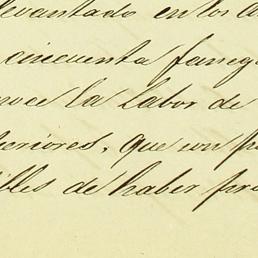 levantado en los a
cincuenta faneg
noce la labor de
teriores, que con p
ibles de haber pro